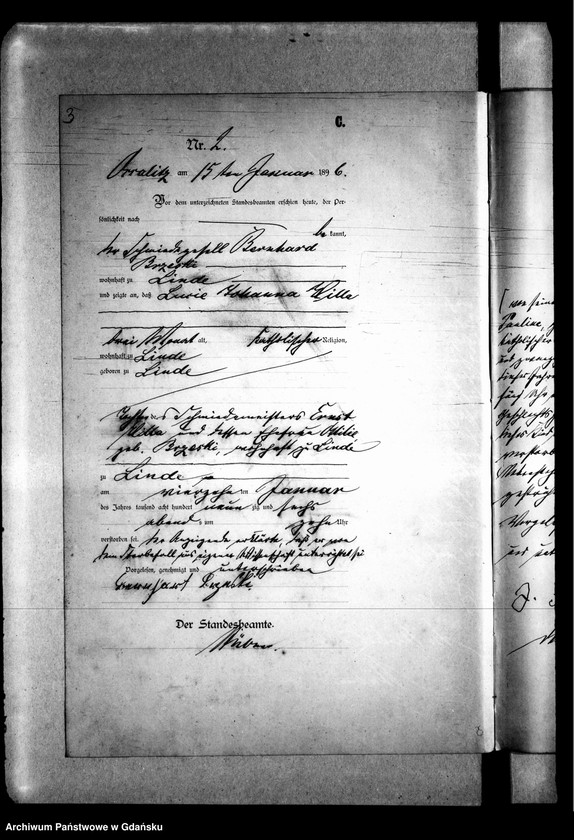 3
C.
Nr. 2.
am 15ten Januar 1896.
Vor dem unterzeichneten Standesbeamten erschien heute, der Per-
sönlichkeit nach
be kannt,
der Schmiedegesell Bernhard
Brzeski
wohnhaft zu Linde
und zeigte an, daß Lucie Johanna Wille
drei Monat alt, katholischer Religion,
wohnhaft zu Linde
geboren zu Linde
Tochter des Schmiedemeisters Ernst
Wille und dessen Ehefrau Ottilie
geb. Brzeski, wohnhaft zu Linde
zu Linde
am vierzehn ten Januar
des Jahres tausend acht hundert neun zig und sechs
abends um zehn Uhr
verstorben sei. Der Anzeigende erklärte, daß er von
dem Sterbefall aus eigener Wissenschaft unterrichtet sei
Vorgelesen, genehmigt und unterschrieben
Bernhart Brzeski.
Der Standesbeamte.
8
Pauline,
katholischer
und
Archiwum Państwowe w Gdańsku